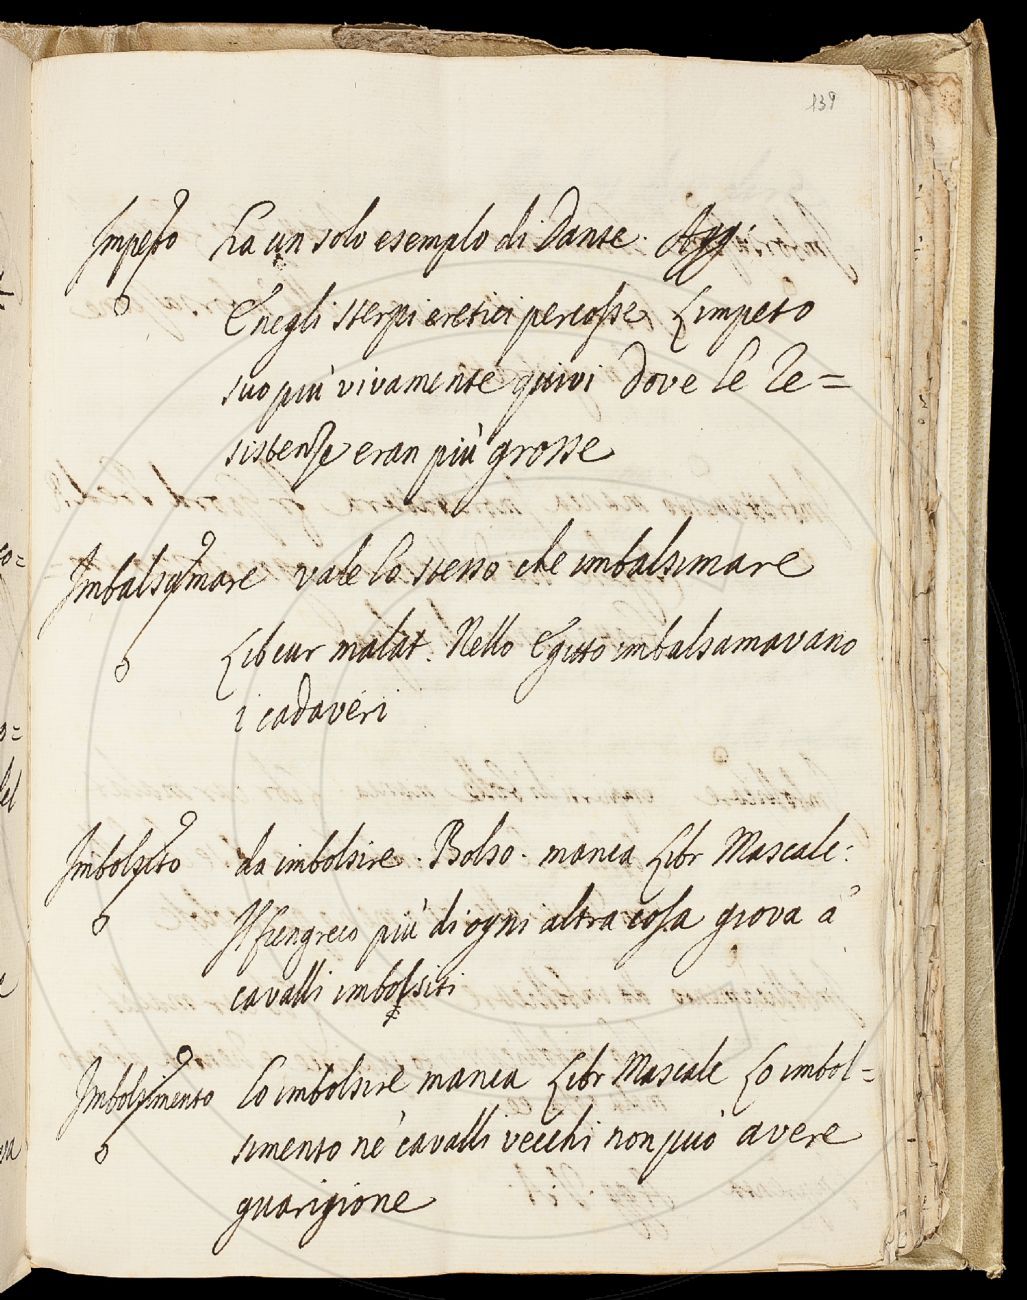 139
Impeto ha un solo esempio di Dante. Agg:
E negli sterpi eretici percosse L'impeto
suo più vivamente quivi dove le re=
sistenze eran più grosse
Imbalsamare vale lo stesso che imbalsimare
Lib cur malat. Nello Egitto imbalsamavano
i cadaveri
Imbolsito da imbolsire. Bolso. manca Libr Mascalc:
Il fiengreco più di ogni altra cosa giova a'
cavalli imbolsiti
Imbolsimento Lo imbolsire manca Libr Mascalc Lo imbol=
simento ne' cavalli vecchi non può avere
guarigione